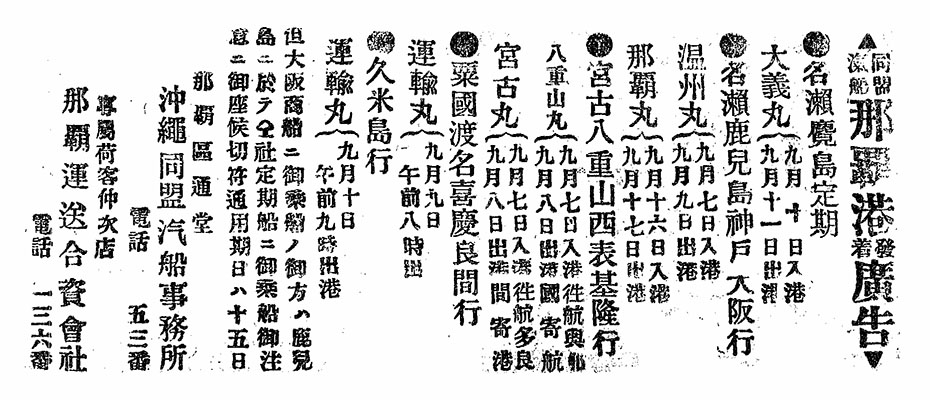 ▲同盟汽船那覇港發着廣告▼
●名瀬鹿兒島定期
大義丸{九月十日入港
九月十一日出港
●名瀬鹿兒島神戸大阪行
温州丸{九月七日入港
九月九日出港
那覇丸{九月十六日入港
九月十七日出港
●宮古八重山西表基隆行
八重山丸{九月七日入港往航與那
九月八日出港國寄航
宮古丸{九月七日入港往航多良
九月八日出港間寄港
●粟國渡名喜慶良間行
運輸丸{九月九日
午前八時出
●久米島行
運輸丸{九月十日
午前九時出港
但大阪商船ニ御乘船ノ御方ハ鹿兒
島ニ於テ仝社定期船ニ御乘船御注
意ニ御座候切符通用期日ハ十五日
那覇區通堂
沖繩同盟汽船事務所
電話 五三番
專屬荷客仲次店
那覇運送合資會社
電話 一三六番